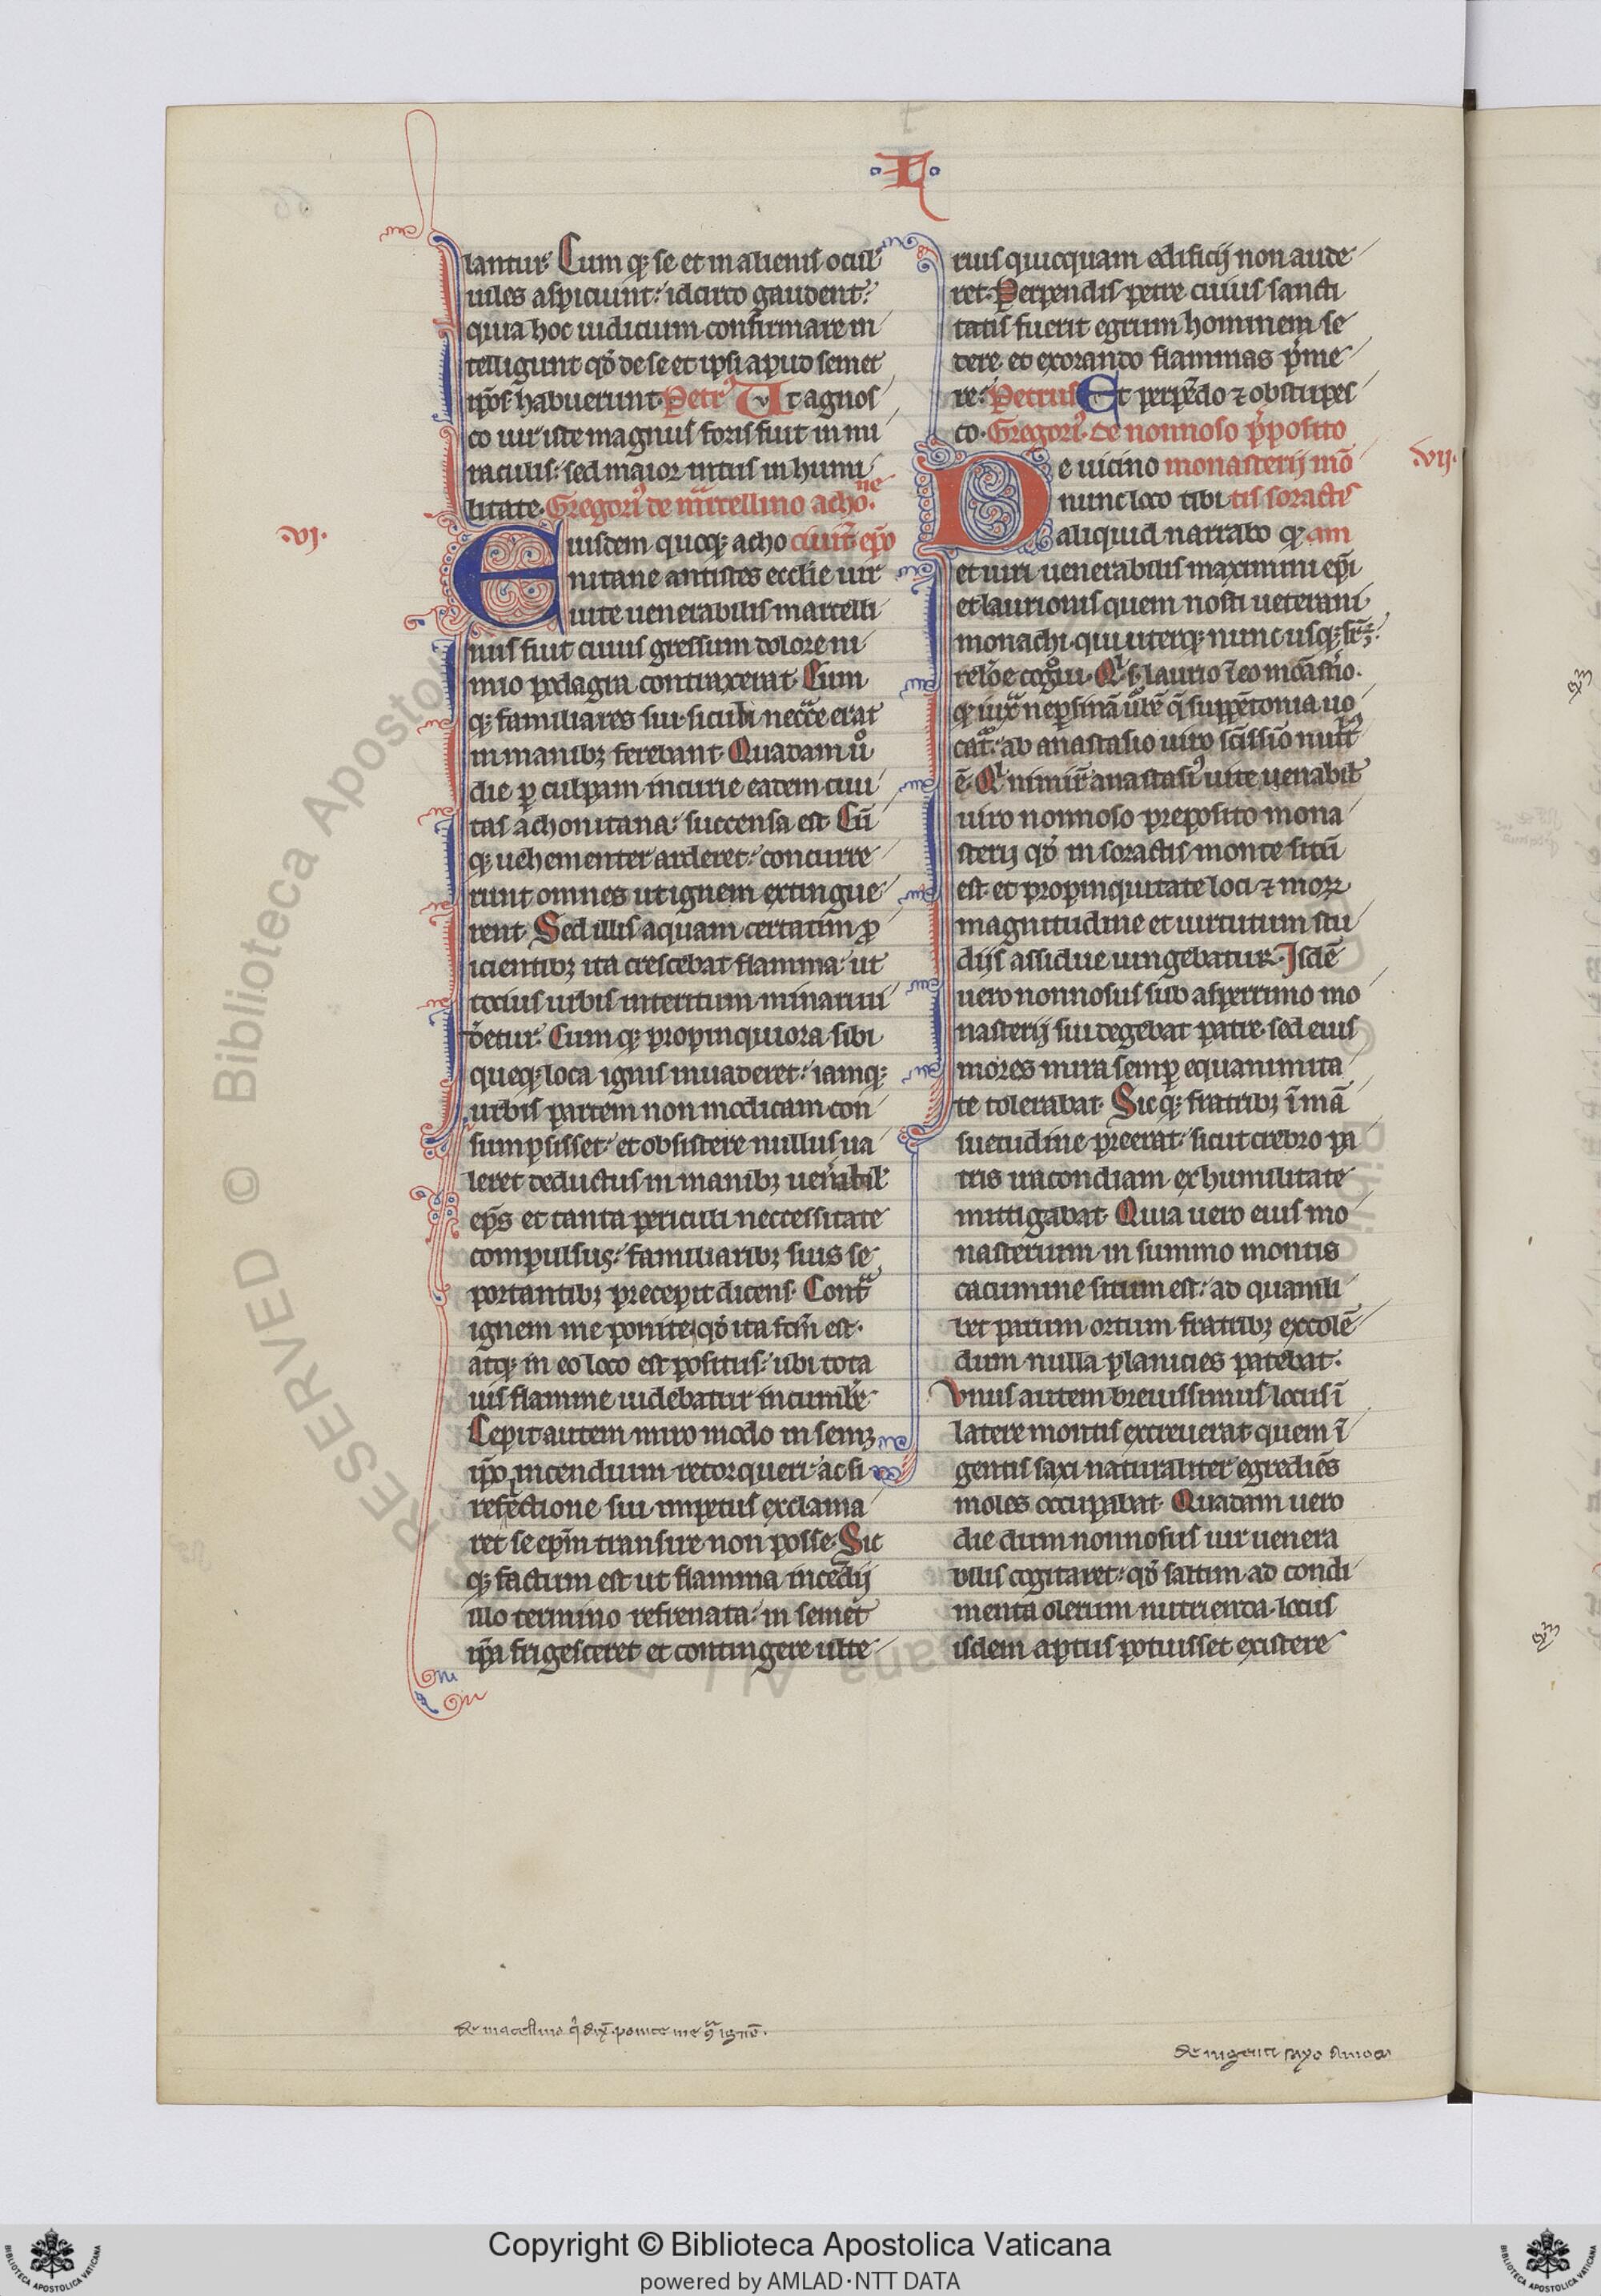 ·L·
lantur. Cumq; se et in alienis ocul'
uiles aspiciunt: idcirco gaudent:
quia hoc iudicium confirmare in
telligunt qđ de se et ipsi apud semet
ip̄os habuerunt. Petrꝰ Ut agnos
co uir iste magnus foris fuit in mi
raculis: sed maior intus in humi
litate. Gregoriꝰ de marcellino acho.ne
.vi.
Eiusdem quoq; acho ciuit̄ ep̄o
nitane antistes ecclie uir
uite uenerabilis marcelli
nus fuit cuius gressum dolore ni
mio podagra contraxerat. Cum
q; familiares sui sicubi necc̄e erat
in manib; ferebant. Quadam uͦ
die ꝑ culpam incurie eadem ciui
tas achonitana: succensa est. Cū
q; uehementer arderet: concurre
runt omnes ut ignem extingue
rent. Sed illis aquam certatim ꝓ
icientib; ita crescebat flamma: ut
tocius urbis interitum minari ui
detur. Cumq; propinquiora sibi
queq; loca ignis inuaderet: iamq;
urbis partem non modicam con
sumpsisset: et obsistere nullus ua
leret deductus in manib; uen̄abil'
ep̄s et tanta periculi neccessitate
compulsus: familiarib; suis se
portantib; precepit dicens. Contᵃ
ignem me ponite. qđ ita fcm̄ est.
atq; in eo loco est positus: ubi tota
uis flamme uidebatur incumbe
Cepit autem miro modo in sem;
ip̄o incendium retorqueri: ac si
reflectione sui impetus exclama
ret se ep̄m transire non posse. Sic
q; factum est ut flamma incēdij
illo termino refrenata: in semet
ip̄a frigesceret et contingere ulte
rius quicquam edificij non aude
ret. Perpendis petre cuius sancti
tatis fuerit egrum hominem se
dere. et exorando flammas p̄me
re: Petrus Et perpēdo ⁊ obstupes
co. Gregoriꝰ. de nonnoso p̄posito
.vij.
De uicino monasterij mō
nunc loco tibi tis soractis
aliquid narrabo qꝫ am
et uiri uenerabilis maximini ep̄i
et laurionis quem nosti ueterani
monachi. qui uterq; nunc usq; suꝑ:
rel̄oe cog̊ui. Qⁱ .s. laurio ī eo mōastio.
qꝫ iuxᵃ nepesinā ubē q̄ suppētonia uo
catʳ: ab anastasio uiro sc̄issīo nutʳ
ē. Qⁱ nimiꝝ anastasiꝰ uite uenabil'
uiro nonnoso preposito mona
sterij qđ in soractis monte situ̅
est et propinquitate loci ⁊ moꝝ
magnitudine et uirtutum stu
dijs assidue iungebatur. Isdē
uero nonnosus sub asperrimo mo
nasterij sui degebat patre. sed eius
mores mira semꝑ equanimita
te tolerabat. Sicq; fratrib; ī mā
suetudine preerat: sicut crebro pa
tris iracondiam ex humilitate
mittigabat. Quia uero eius mo
nasterium in summo montis
cacumine situm est: ad quamli
bet paruum ortum fratrib; excolē
dum nulla planicies patebat.
Unus autem breuissimus locus ī
latere montis excreuerat quem ī
gentis saxi naturaliter egrediēs
moles occupabat. Quadam uero
die dum nonnosus uir uenera
bilis cogitaret: qđ saltim ad condi
menta olerum nutrienda. locus
isdem aptus potuisset existere
de macellino qⁱ dix̄. ponite me ꝯᵃ ignē.
de ingenti saxo amoto
Copyright © Biblioteca Apostolica Vaticana
powered by AMLAD·NTT DATA